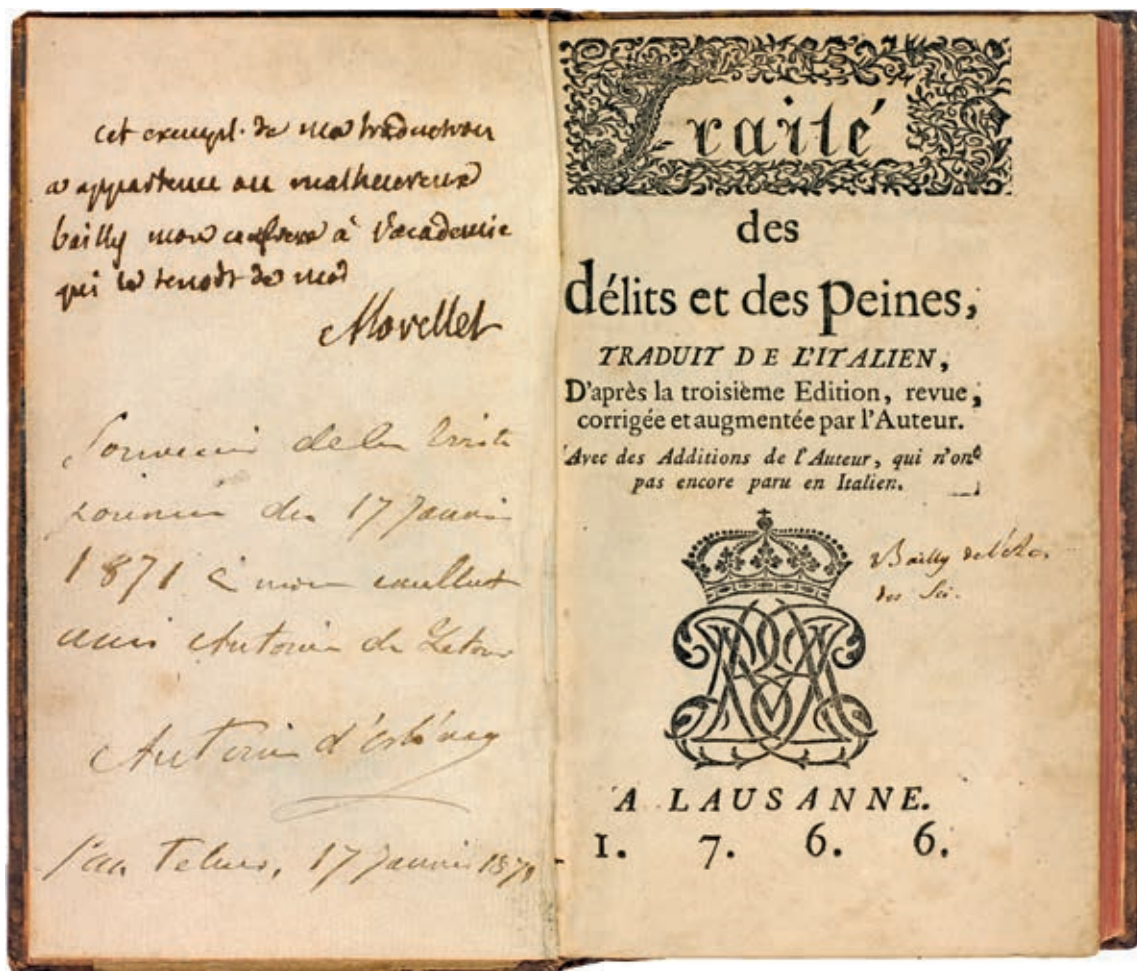 cet exempl. de ma traduction
a appartenu au malheureux
bailly mon confrere à l'academie
qui la tenoit de moi
Morellet
Souvenir de la triste
journée du 17 Janvier
1871 à mon excellent
ami Antoine de Latour
Antoine d'Orléans
San Telmo, 17 janvier 1871
Traité
des
délits et des peines,
TRADUIT DE L'ITALIEN,
D'après la troisième Edition, revue,
corrigée et augmentée par l'Auteur.
Avec des Additions de l'Auteur, qui n'ont
pas encore paru en Italien.
Bailly de l'
des Sci.
A LAUSANNE.
1. 7. 6. 6.